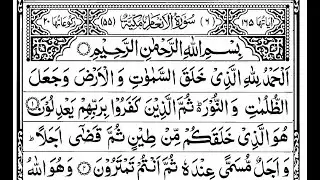 اٰیَاتُهَا ١٦٥ (٦) سُوْرَةُ الْاَنْعَامِ مَكِّیَّةٌ (٥٥) رُكُوْعَاتُهَا ٢٠
بِسْمِ اللّٰهِ الرَّحْمٰنِ الرَّحِیْمِ
اَلْحَمْدُ لِلّٰهِ الَّذِیْ خَلَقَ السَّمٰوٰتِ وَ الْاَرْضَ وَجَعَلَ
الظُّلُمٰتِ وَ النُّوْرَ ؕ ثُمَّ الَّذِیْنَ كَفَرُوْا بِرَبِّهِمْ یَعْدِلُوْنَ ۝١
هُوَ الَّذِیْ خَلَقَكُمْ مِّنْ طِیْنٍ ثُمَّ قَضٰۤی اَجَلًا ؕ
وَ اَجَلٌ مُّسَمًّی عِنْدَهٗ ثُمَّ اَنْتُمْ تَمْتَرُوْنَ ۝٢ وَهُوَ اللّٰهُ